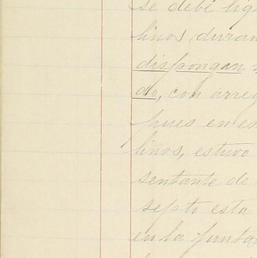 se debe
linos, duran
dispongan
do, con arre
pues en es
linos, estuvo
sentante de
septo esta
en la funta